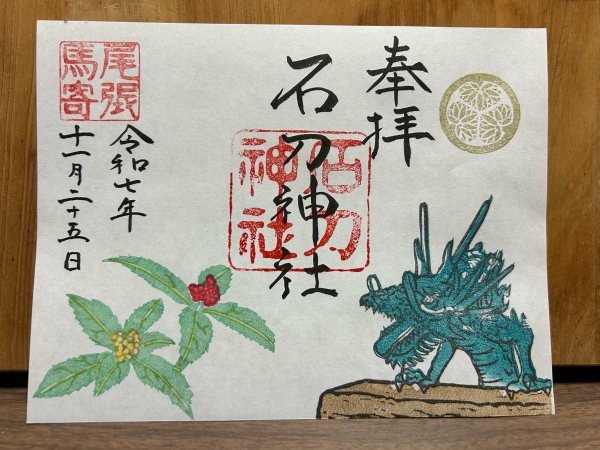 奉拝
石刀神社
石刀神社
尾張馬寄
令和七年
十一月二十五日